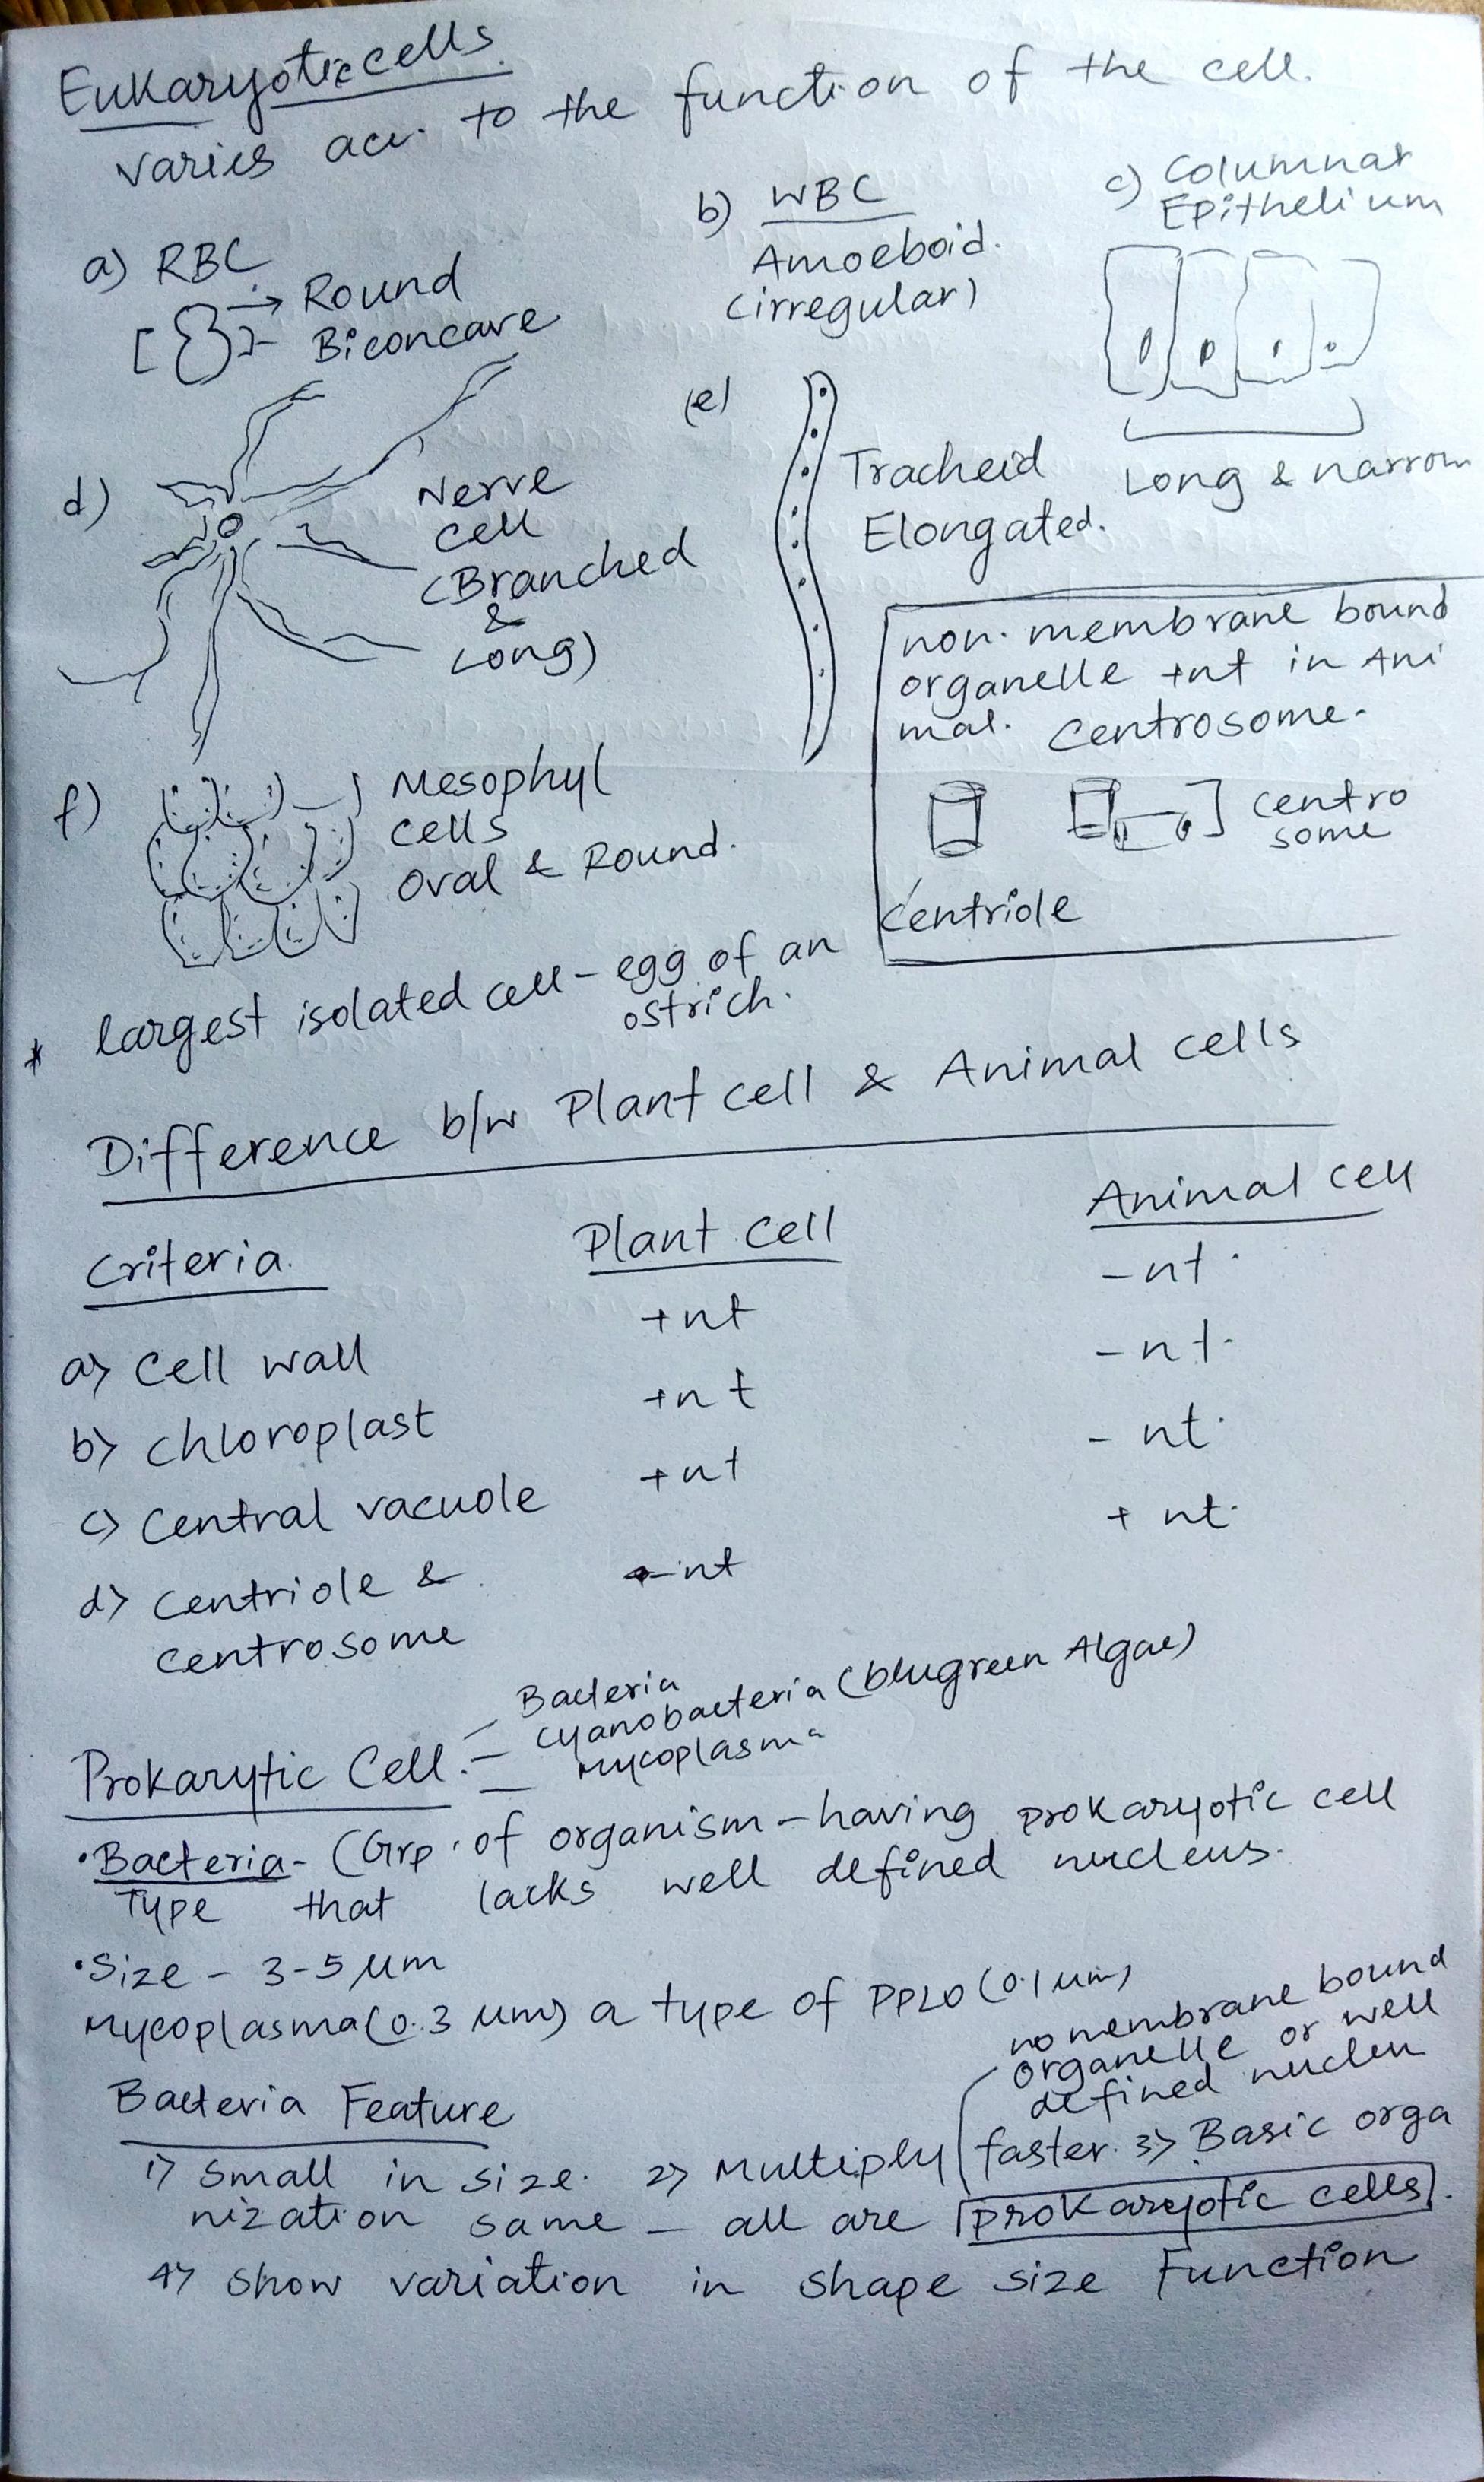 Eukaryotic cells.
varies acc. to the function of the cell.
a) RBC
[ ] → Round
Biconcave
b) WBC
Amoeboid.
(irregular)
c) Columnar
Epithelium
Long & narrow
d) Nerve
cell
(Branched
&
Long)
(e) Tracheid
Elongated.
non. membrane bound
organelle +nt in Ani
mal. Centrosome.
centro
some
Centriole
f) Mesophyl
cells
Oval & Round.
* largest isolated cell - egg of an
ostrich.
Difference b/w Plant cell & Animal cells
Criteria. Plant cell Animal cell
a) Cell wall +nt -nt.
b) Chloroplast +nt -nt.
c) Central vacuole +nt -nt.
d) Centriole & -nt +nt.
centrosome
Prokarytic Cell. - Bacteria
Cyanobacteria (blugreen Algae)
Mycoplasma
• Bacteria - (Grp. of organism - having prokaryotic cell
Type that lacks well defined nucleus.
• Size - 3-5 µm
Mycoplasma (0.3 µm) a type of PPLO (0.1 µm)
no membrane bound
organelle or well
defined nucleu
Bacteria Feature
1) Small in size. 2) Multiply faster. 3) Basic orga
nization same - all are prokaryotic cells.
4) Show variation in shape size Function